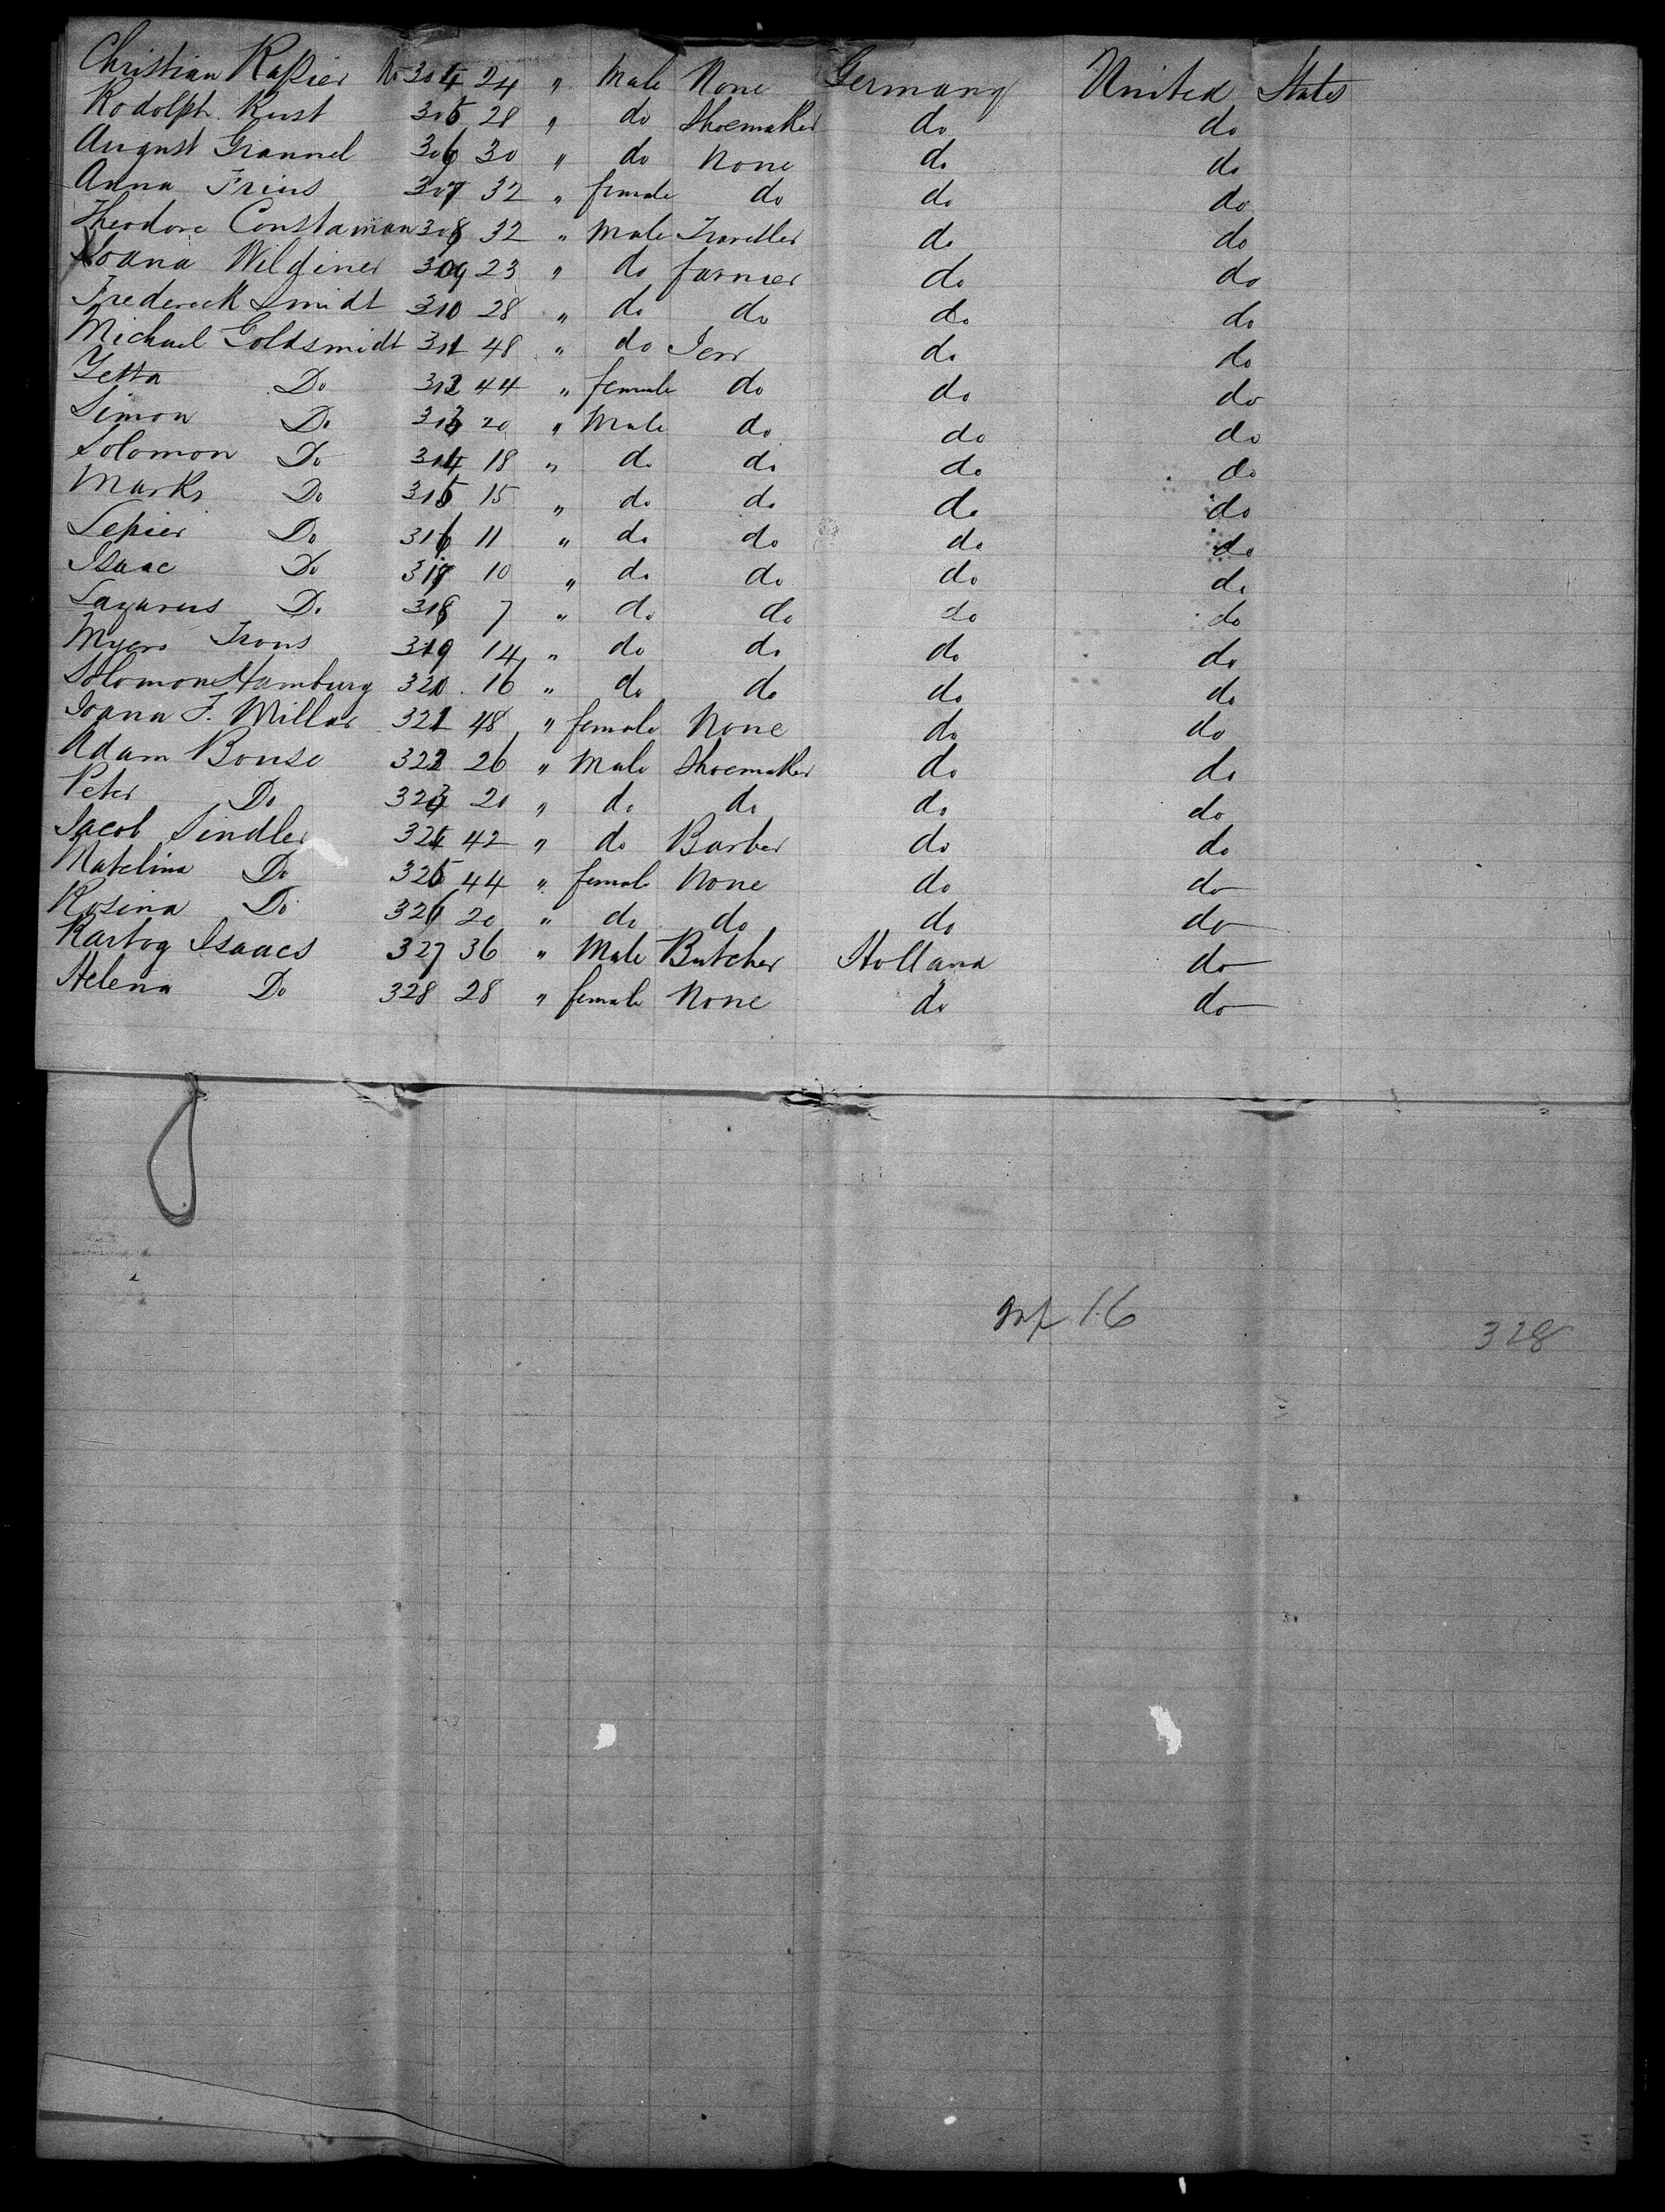 Christian Rassier No 304 24 " Male None Germany United States
Rodolph Rust 305 28 " do Shoemaker do do
August Grannel 306 30 " do None do do
Anna Frius 307 32 " female do do do
Theodore Constaman 308 32 " Male Traveller do do
Joana Wildiner 309 23 " do farmer do do
Frederick Smidt 310 28 " do do do do
Michael Goldsmidt 311 48 " do Jew do do
Zetta Do 312 44 " female do do do
Simon Do 313 20 " Male do do do
Solomon Do 314 18 " do do do do
Marks Do 315 15 " do do do do
Do 316 11 " do do do do
Isaac Do 317 10 " do do do do
Lazarus Do 318 7 " do do do do
Myers Irons 319 14 " do do do do
Solomon Hamburg 320 16 " do do do do
Joana F. Millar 321 48 " female None do do
Adam Bouse 322 26 " Male Shoemaker do do
Peter Do 323 20 " do do do do
Jacob Sindler 324 42 " do Barber do do
Matelina Do 325 44 " female None do do
Rosina Do 326 20 " do do do do
Hartog Isaacs 327 36 " Male Butcher Holland do
Helena Do 328 28 " female None do do
inf 16
328